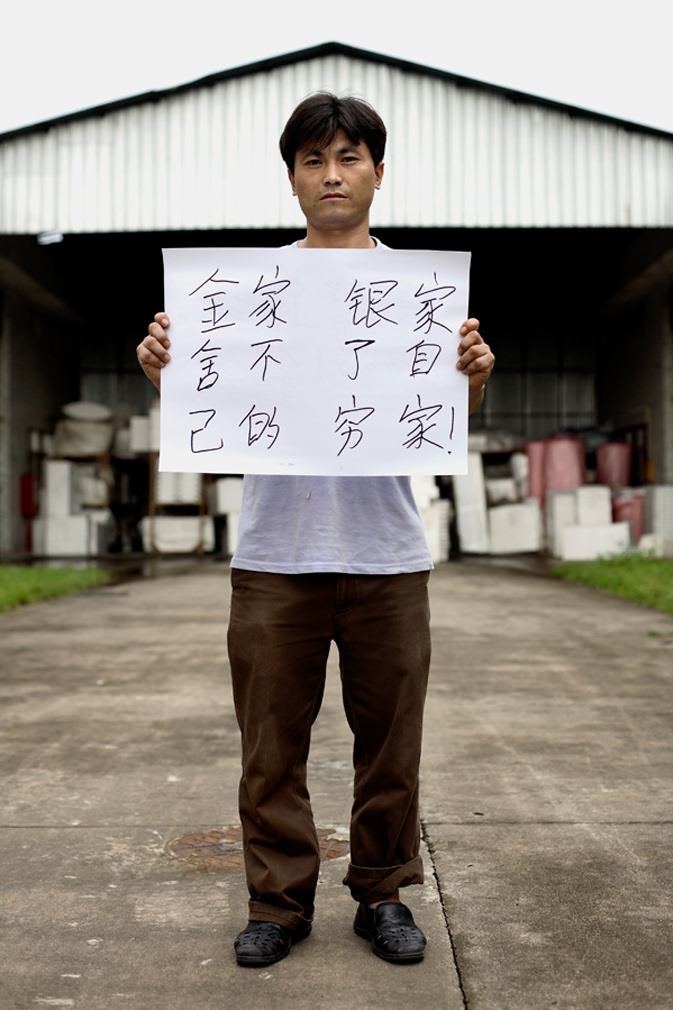 金家 银家
舍不 了自
己的 穷家!